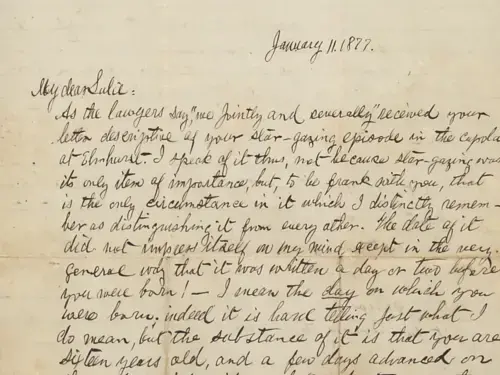 January 11. 1877.
My dear Sulie:
As the lawyers say, "we jointly and severally" received your
letter descriptive of your star-gazing episode in the cupola
at Elmhurst. I speak of it thus, not because star-gazing was
its only item of importance, but, to be frank with you, that
is the only circumstance in it which I distinctly remem-
ber as distinguishing it from every other. The date of it
did not impress itself on my mind, except in the very
general way that it was written a day or two before
you were born! — I mean the day on which you
were born. indeed it is hard telling just what I
do mean, but the substance of it is that you are
sixteen years old, and a few days advanced on